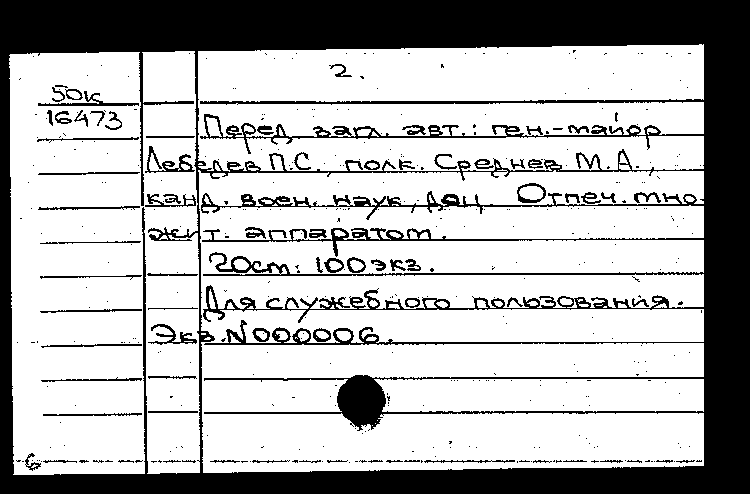 2.
50к
16473
Перед загл. авт.: ген.-майор
Лебедев П.С., полк. Среднев М.А.,
канд. воен. наук, доц. Отпеч. мно-
жит. аппаратом.
20см. 100экз.
Для служебного пользования.
Экз. N000006.
6